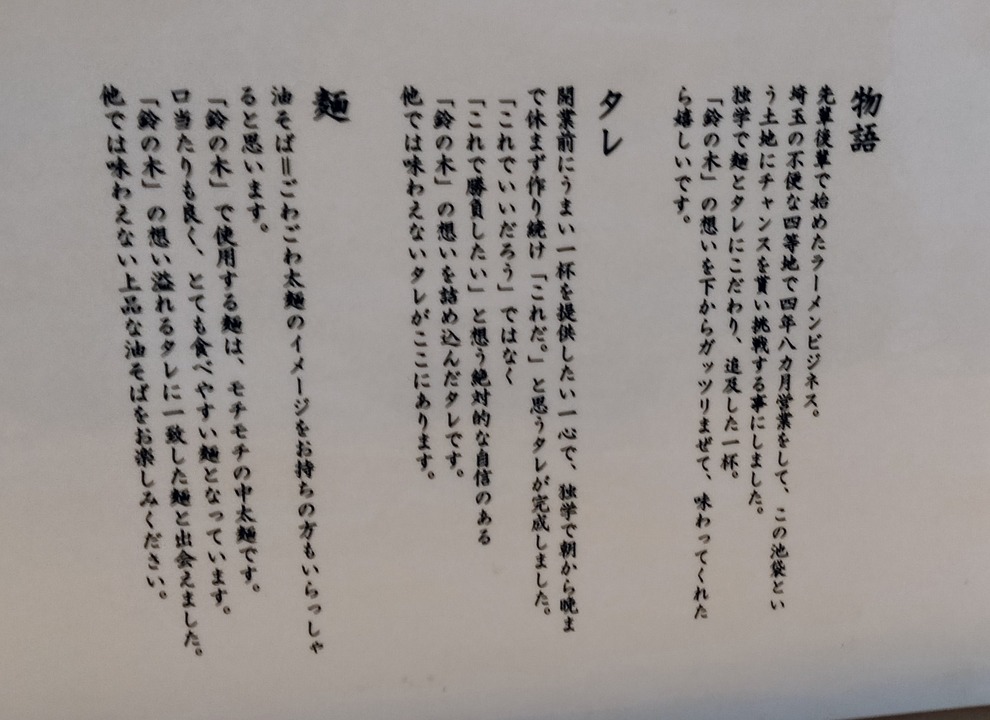 物語
先輩後輩で始めたラーメンビジネス。
埼玉の不便な四等地で四年八カ月営業をして、この池袋とい
う土地にチャンスを貰い挑戦する事にしました。
独学で麺とタレにこだわり、追及した一杯。
「鈴の木」の想いを下からガッツリまぜて、味わってくれた
ら嬉しいです。
タレ
開業前にうまい一杯を提供したい一心で、独学で朝から晩ま
で休まず作り続け「これだ。」と思うタレが完成しました。
「これでいいだろう」ではなく
「これで勝負したい」と想う絶対的な自信のある
「鈴の木」の想いを詰め込んだタレです。
他では味わえないタレがここにあります。
麺
油そば＝ごわごわ太麺のイメージをお持ちの方もいらっしゃ
ると思います。
「鈴の木」で使用する麺は、モチモチの中太麺です。
口当たりも良く、とても食べやすい麺となっています。
「鈴の木」の想い溢れるタレに一致した麺と出会えました。
他では味わえない上品な油そばをお楽しみください。